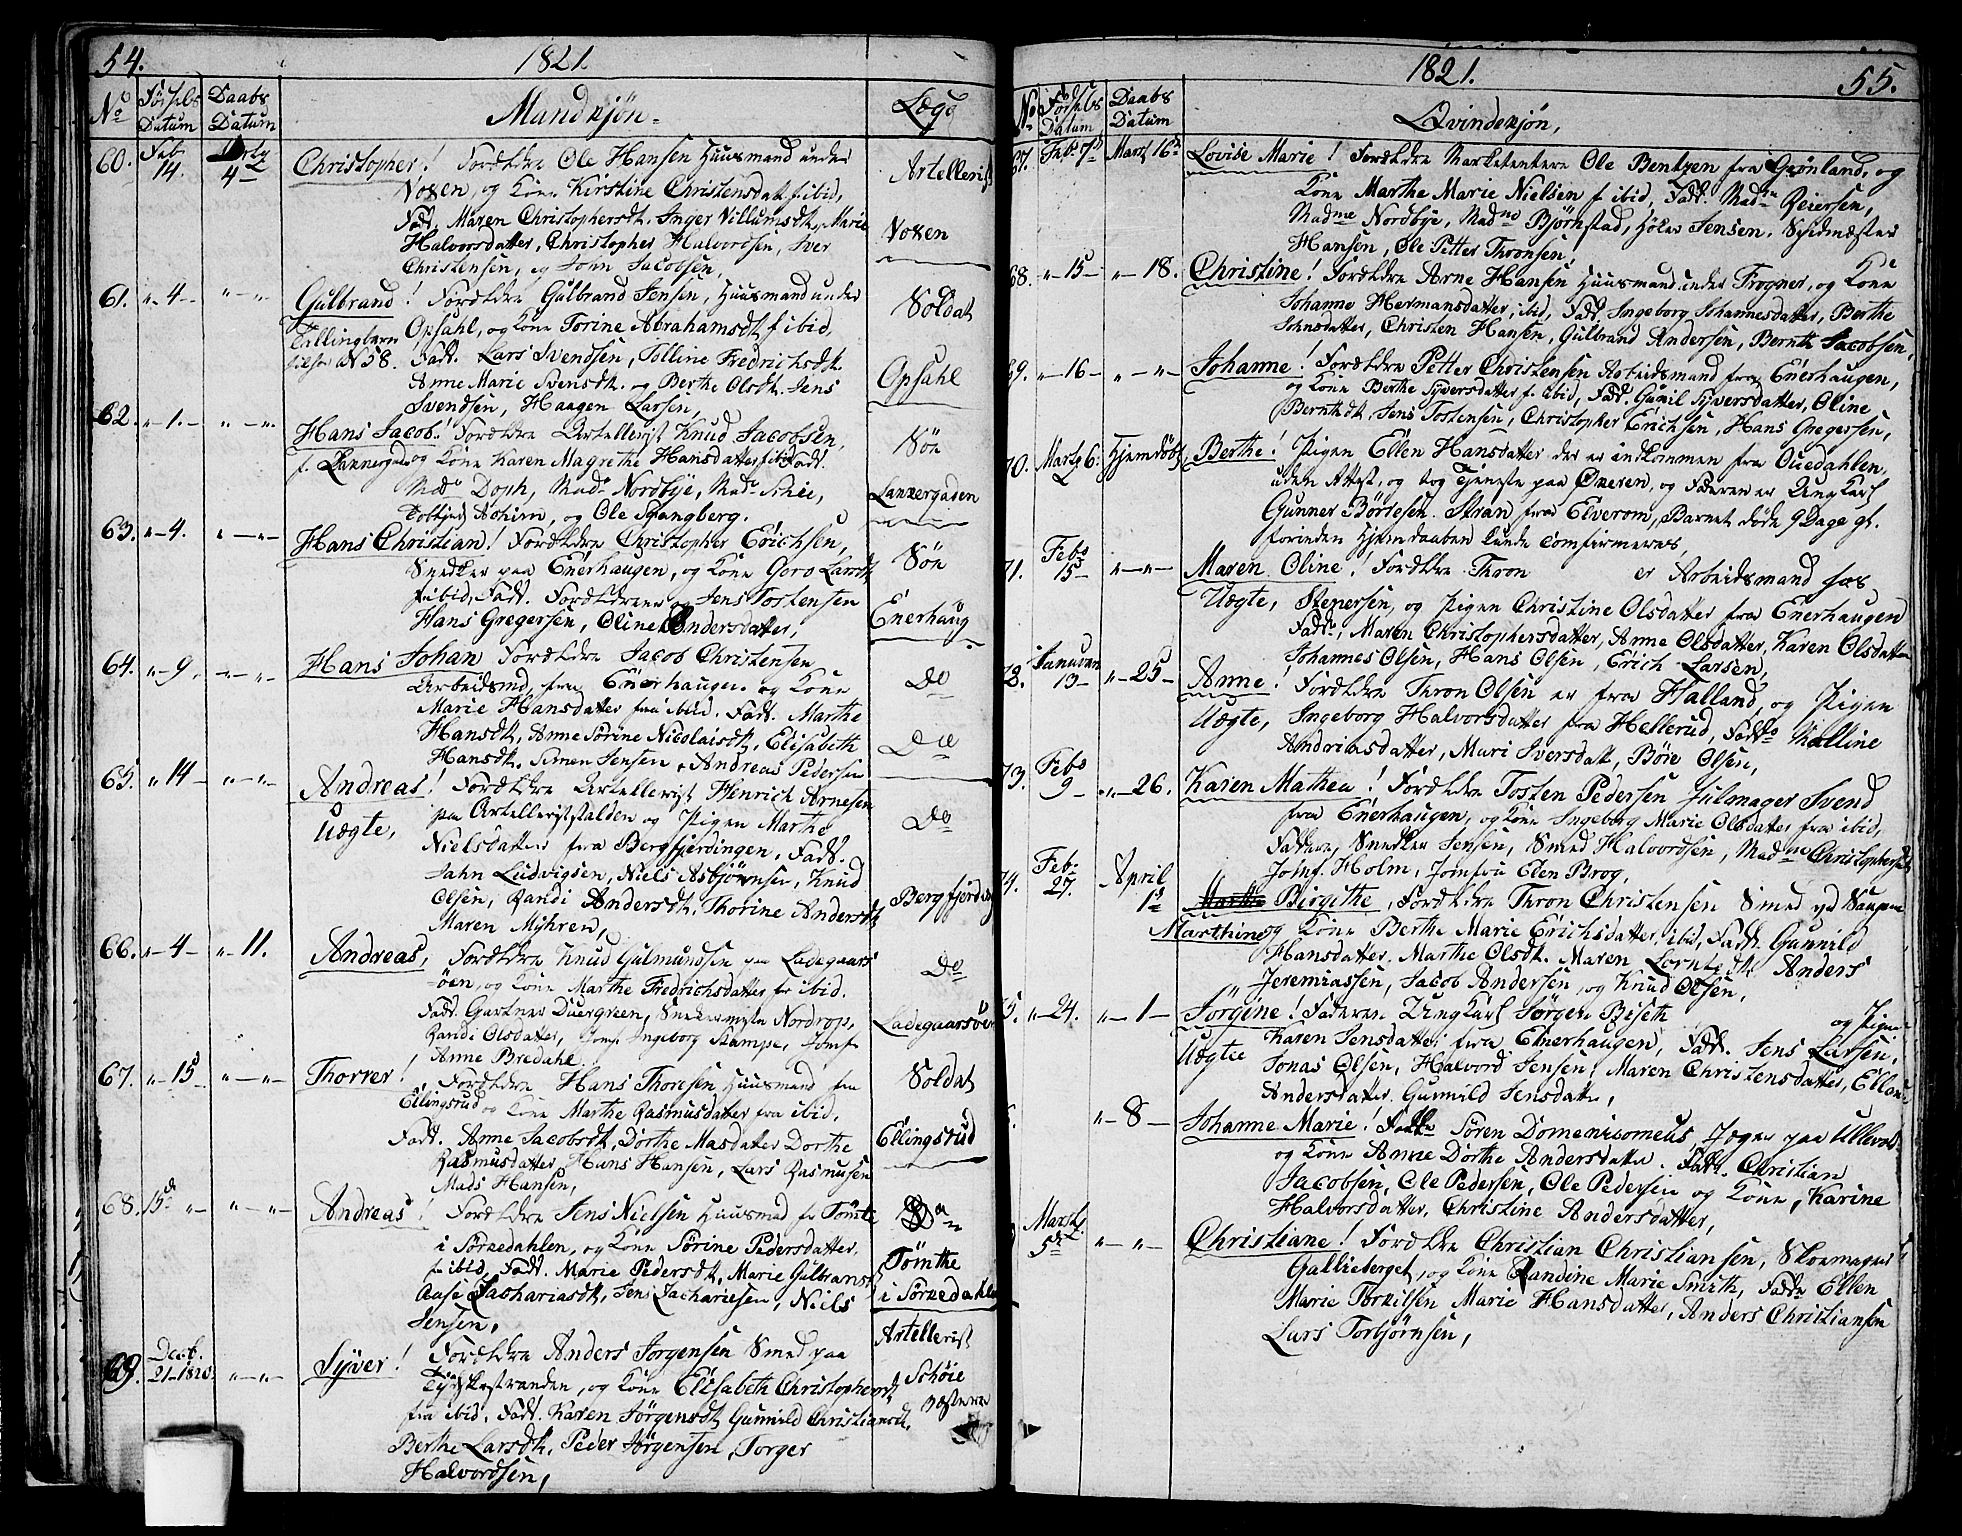 54.
1821.
No
Fødsels
Datum
Daabs
Datum
Mandkjøn
Lægd
60.
Feb
14.
4
Christopher! Forældre Ole Hansen Huusmand under
Noxen, og Kone Kirstine Christensdat f. ibid,
Fad. Maren Christophersdt. Inger Villumsdt, Marie
Halvorsdatter, Christopher Halvordsen, Iver
Christensen, og John Jacobsen,
Artellerist
Noxen
61. "-4- "-"-
Gulbrand! Forældre Gulbrand Jensen, Huusmand under
Tvillingbarn Opsahl, og Kone Torine Abrahamsdt f ibid,
No 58. Fadt. Lars Svendsen, Tolline Fredrichsdt.
Anne Marie Svensdt. og Berthe Olsdt. Jens
Svendsen, Haagen Larsen,
Soldat
Opsahl
62. "-1.- "-"-
Hans Jacob! Forældre Artellerist Knud Jacobsen,
f. Lakkergaden og Kone Karen Magrethe Hansdatter f ibid Fadt.
Mad. Doph, Mad. Nordbye, Mad. Schie,
Achim, og Ole Spangberg.
Søn
Lakkergaden
63. "-4. "-"-
Hans Christian! Forældre Christopher Erichsen,
Snedker paa Enerhaugen, og Kone Goro Larsdt
f. ibid, Fadt. Forældrene og Jens Tostensen
Hans Gregersen, Oline Andersdatter,
Søn
Enerhaug
64. "-9. "-"-
Hans Johan Forældre Jacob Christensen
Arbeidsmd, fra Enerhaugen og Kone
Marie Hansdatter fra ibid. Fadt. Marthe
Hansdt, Anne Sørine Nicolaisdt, Elisabeth
Hansdt. Simen Jensen, Andreas Pedersen
Do
Do
65. "14- "-"-
Andreas! Forældre Artellerist Henrich Arnesen
Uægte, paa Artelleristalden og Pigen Marthe
Nielsdatter fra Bergfjerdingen. Fadt.
Jahn Ludvigsen, Niels Asbjørnsen, Knud
Olsen, Randi Andersdt, Thorine Andersdt
Maren Myhren,
Do
Bergfjerding
66. "-4- "-11.
Andreas, Forældre Knud Gulmundsen paa Ladegaars
øen, og Kone Marthe Fredrichsdatter f ibid.
Fadt. Gartner Duergreen, Nordrop,
Randi Olsdatter, Jomf. Ingeborg Kampe, Jomf
Anne Bredahl
Do
Ladegaarsøen
67. "-15- "-"-
Thorrer! Forældre Hans Thoresen Huusmand fra
Ellingsrud og Kone Marthe Rasmusdatter fra ibid.
Fadt. Anne Jacobsdt, Dorthe Masdatter Dorthe
Rasmusdatter, Hans Hansen, Lars Rasmusen
Mads Hansen,
Soldat
Ellingsrud
68. 15d "- "-"-
Andreas! Forældre Jens Nielsen Huusmad fr Tømte
i Sørkedahlen, og Kone Sørine Pedersdatter.
f. ibid, Fadt. Marie Pedersdt, Marie Gulbransdt
Aase Zachariasdt, Jens Zachariesen, Niels
Jensen,
Do
Tømthe
i Sørkedahlen
69.
Decb.
21-1820. "-"-
Syver! Forældre Anders Jorgensen Smed paa
Tyskestranden, og Kone Elisabeth Christophersdt
fra ibid. Fadt. Karen Jørgensdt, Gunnild Christiansdt,
Berthe Larsdt, Peder Jørgensen, Torger
Halvordsen,
Artellerist
Schøie
1821.
55.
No
Fødsels
Datum
Daabs
Datum
Qvindekjøn,
67. Feb. 7d Marts 16d
Lovise Marie! Forældre Marketentere Ole Bentzen fra Grønland, og
Kone Marthe Marie Nielsen f ibid, Fadt. Madme Reiersen,
Madme Nordbye, Madme Bjørnstad, Jensen.
Hansen, Ole Petter Thronsen,
68. "-15- "-18.
Christine! Forældre Arne Hansen Huusmand under Frogner, og Kone
Johanne Hermansdatter, ibid, Fadt. Ingeborg Johannesdatter, Berthe
Johnsdatter, Christen Hansen, Gulbrand Andersen, Bernth Jacobsen,
69. "-16- "-"-
Johanne! Forældre Petter Christensen Arbeidsmand fra Enerhaugen,
og Kone Berthe Syversdatter f. ibid, Fadt. Gunil Syversdatter, Oline
Berntsdt, Jens Tostensen, Christopher Erichsen, Hans Gregersen,
70. Marts 6. Hjemdøbt
Berthe! Pigen Ellen Hansdatter der er indkommen fra Ouedahlen,
uden Attest, og tog Tjeneste paa Økeren, og Faderen er Ungkarl
Gunner Børtesen Stran fra Elverom, Barnet døde 9 Dage gl.
forinden Hjemdaaben kunde comfirmeres,
71.
Feb.
15- "-"-
Maren Oline! Forældre Thron er Arbeidsmand hos
Uægte, Stenersen, og Pigen Christine Olsdatter fra Enerhaugen
Fadt., Maren Christophersdatter, Anne Olsdatter, Karen Olsdatter
Johannes Olsen, Hans Olsen, Erich Larsen,
72.
Januari
13- "-25-
Anne! Forældre Thron Olsen er fra Halland, og Pigen
Uægte, Ingeborg Halvorsdatter fra Hellerud, Fadt. Malline
Andriasdatter, Mari Iversdatt, Børe Olsen,
73.
Feb.
9- "-26.
Karen Mathea! Forældre Tosten Pedersen Hulmager Svend
fra Enerhaugen, og Kone Ingeborg Marie Olsdatter fra ibid,
Faddere, Snedker Jensen, Smed Halvordsen, Madme Christophersdt
Jomf. Holm, Jomfru Elen Brog,
74.
Feb.
27.
April
1d
Birgithe, Forældre Thron Christensen Smed
Marthine og Kone Berthe Marie Erichsdatter, ibid, Fadt. Gunnild
Hansdatter, Marthe Olsdt. Maren Lorntzdt, Anders
Jeremiassen, Jacob Andersen, og Knud Olsen,
75. "-24. "-1-
Jørgine! Faderen Ungkarl Jørgen Biseth og Pigen
Uægtee Karen Jensdatter fra Enerhaugen, Fadt. Jens Larsen,
Jonas Olsen, Halvord Jensen, Maren Christensdatter, Ellen
Andersdatter, Gunnild Jensdatter,
"-8-
Johanne Marie! Søren Domenicomeus, Jæger paa Ullevold
og Kone Anne Dorthe Andersdatter. Fadt. Christian
Jacobsen, Ole Pedersen, Ole Pedersen og Kone, Karine
Halvorsdatter, Christine Andersdatter,
Marts
5d "-"-
Christiane! Forældre Christian Christiansen, Skomager
Gallieberget, og Kone Randine Marie Smith, Fadr Ellen
Marie Torkilsen Marie Hansdatter, Anders Christiansen
Lars Torbjørnsen,